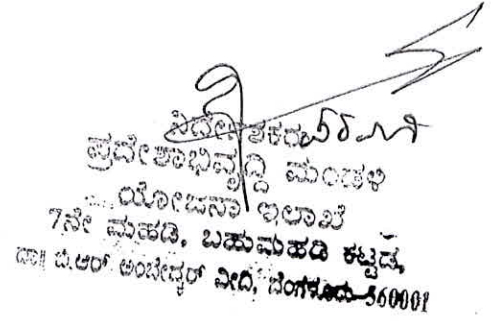 ನಿರ್ದೇಶಕರು
ಪ್ರದೇಶಾಭಿವೃದ್ಧಿ ಮಂಡಳಿ
ಯೋಜನಾ ಇಲಾಖೆ
7ನೇ ಮಹಡಿ, ಬಹುಮಹಡಿ ಕಟ್ಟಡ,
ಡಾ॥ ಬಿ.ಆರ್ ಅಂಬೇಡ್ಕರ್ ವೀದಿ, ಬೆಂಗಳೂರು-560001